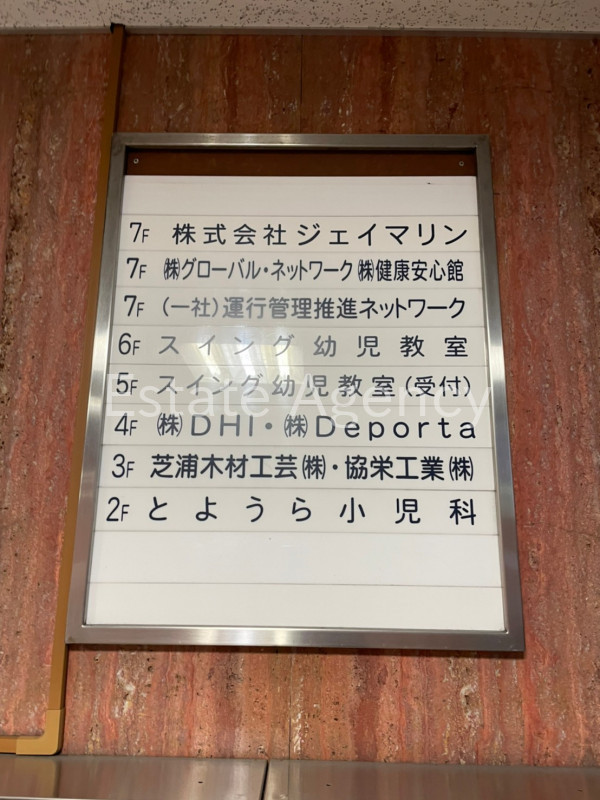 7F 株式会社ジェイマリン
7F ㈱グローバル・ネットワーク ㈱健康安心館
7F (一社)運行管理推進ネットワーク
6F スイング幼児教室
5F スイング幼児教室(受付)
Estate Agency
4F ㈱DHI・㈱Deporta
3F 芝浦木材工芸㈱・協栄工業㈱
2F とようら小児科